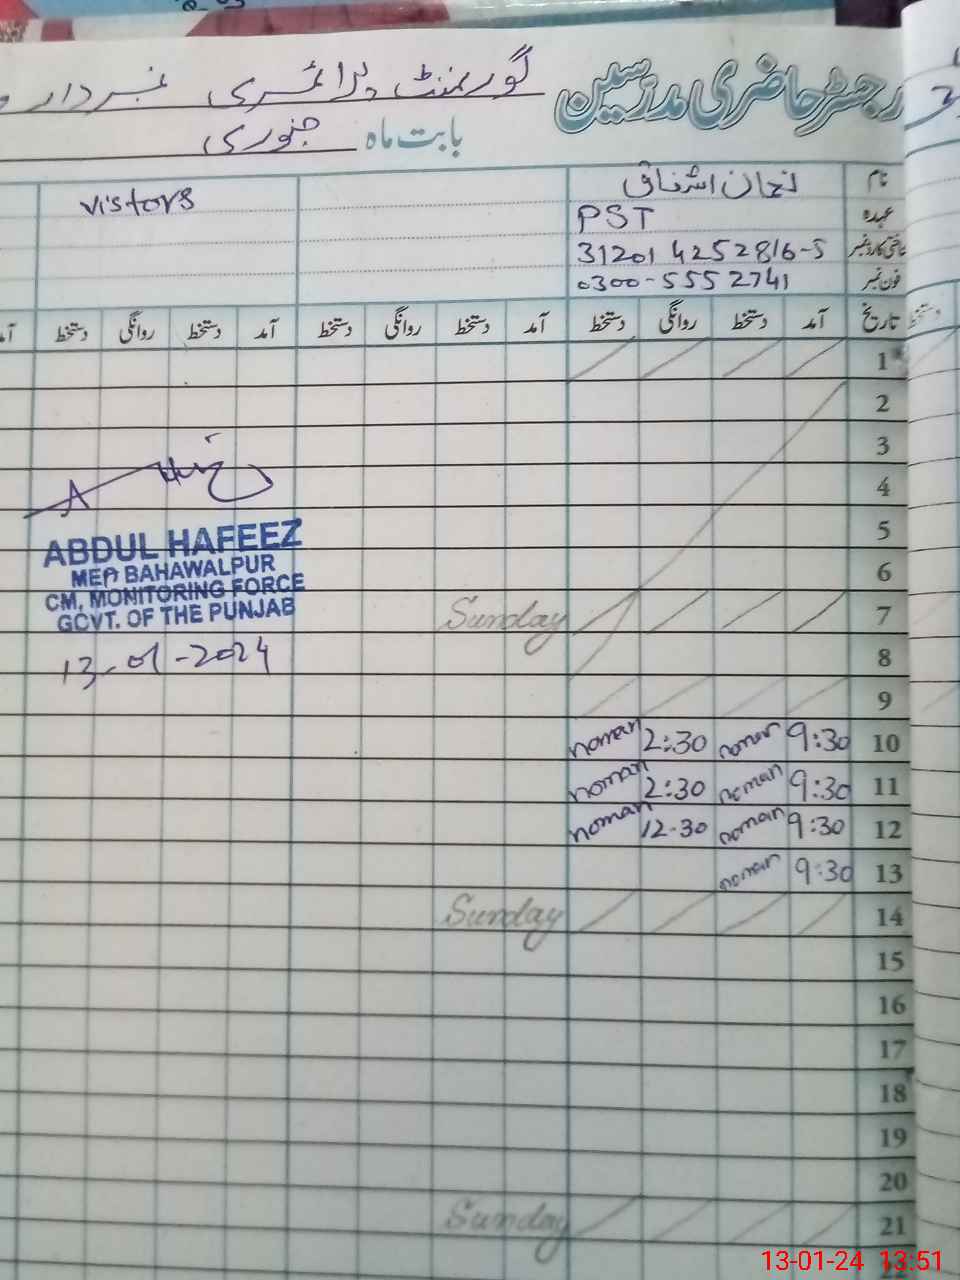 رجسٹر حاضری مدرسین گورنمنٹ پرائمری نمبردار
بابت ماہ جنوری
نام نعمان اشفاق
visitors
عہدہ PST
شناختی کارڈ نمبر 31201 4252816-5
فون نمبر 0300-5552741
تاریخ آمد دستخط روانگی دستخط آمد دستخط روانگی دستخط آمد دستخط روانگی دستخط
1
2
3
4
5
6
7 Sunday
8
9
10 9:30 noman 2:30 noman
11 9:30 noman 2:30 noman
12 9:30 noman 12-30 noman
13 9:30 noman
14 Sunday
15
16
17
18
19
20
21 Sunday
ABDUL HAFEEZ
MEA BAHAWALPUR
CM, MONITORING FORCE
GOVT. OF THE PUNJAB
13-01-2024
13-01-24 13:51